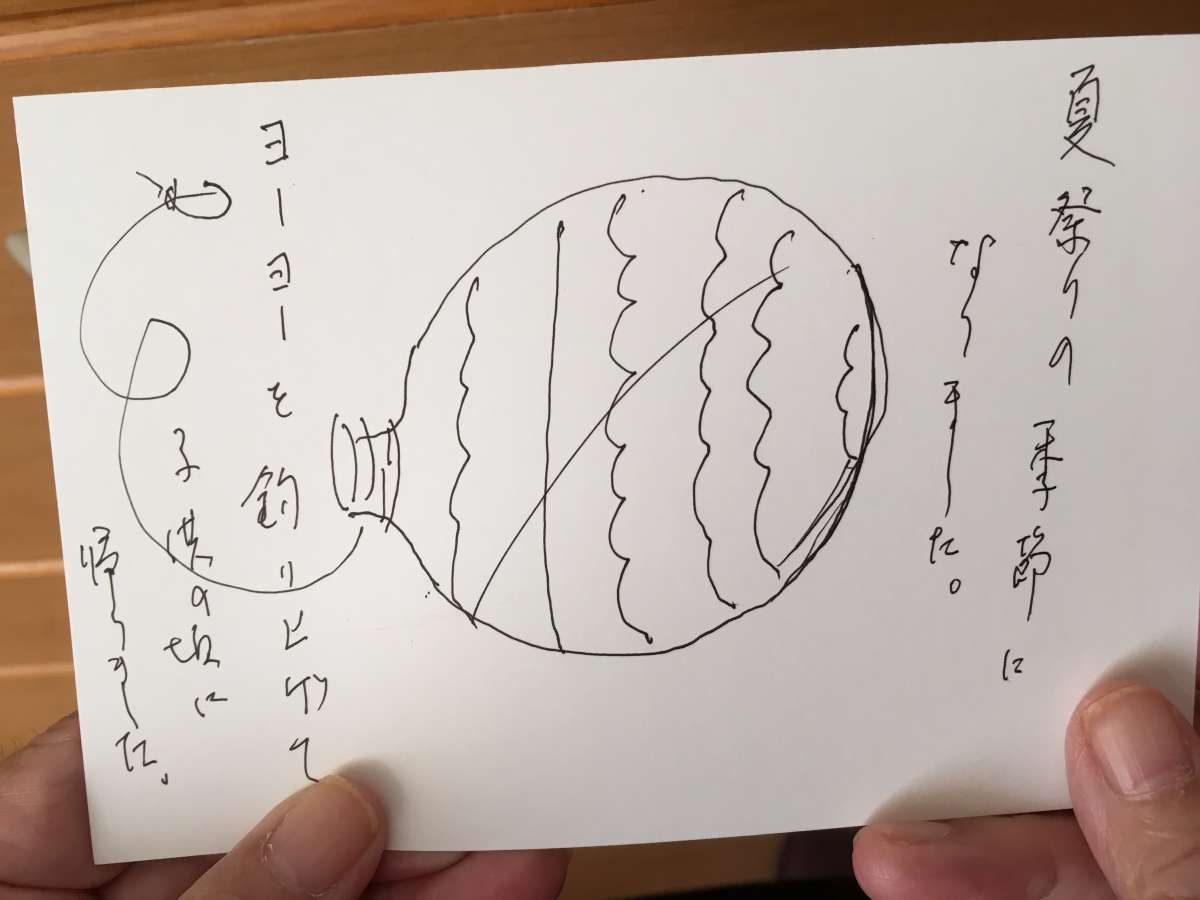 夏祭りの季節に
なりました。
ヨーヨーを釣り上げて
子供の頃に
帰りました。